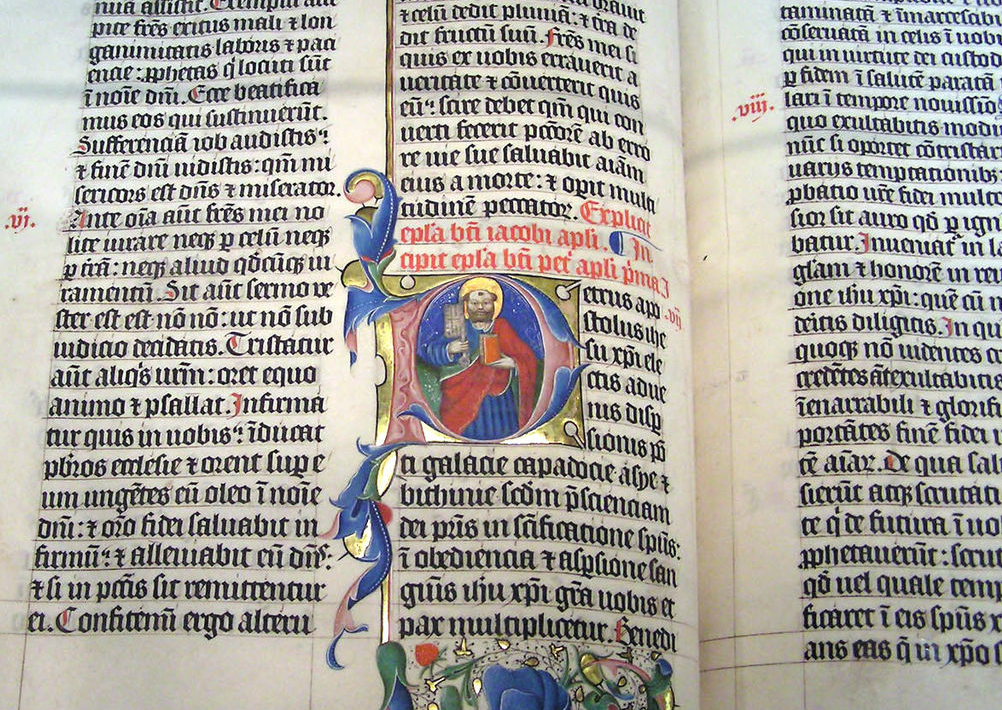 nua assistit. Exemplum accí
pite frēs exitus mali ⁊ lon
ganimitatis laboris ⁊ paci
encie: ꝓphetas q̄ locuti sūt
ī noīe dnī. Ecce beatifica
mus eos qui sustinuerūt.
Sufferenciā iob audistis:
⁊ finē dnī uidistis: qm̄ mi
sericors est dn̄s ⁊ miserator.
.vj.
Ante oīa aūt frēs mei no
lite iurare neqꝫ ꝑ celū neqꝫ
ꝑ trā: neqꝫ aliud qd̄cūqꝫ iu
ramentū. Sit aūt sermo ve
ster est est nō nō: ut nō sub
iudicio decidatis. Tristatur
aūt aliqs vrm̄: oret equo
animo ⁊ psallat. Infirma
tur quis in uobis: īducat
pbr̄os ecclesie ⁊ orent suꝑ e
um ungētes eū oleo ī noīe
dnī: ⁊ orō fidei saluabit in
firmū: ⁊ alleviabit eū dn̄s:
⁊ si in pctīs sit remittentur
ei. Confitemī ergo alteru
⁊ celū dedit pluuiā: ⁊ tra de
dit fructū suū. Frēs mei si
quis ex uobis errauerit a
ueritate ⁊ cōuerterit quis
eū: scire debet qm̄ qui con
uerti fecerit pctōrē ab erro
re uie sue saluabit aīam
eius a morte: ⁊ opit multi
tudinē peccator. Explicit
epl̄a bt̄i iacobi apl̄i. ¶ In
cipit epl̄a bt̄i pet apl̄i p̄ma I
Petrus apo
.vij
stolus ihe
su xpī ele
ctis adue
nis disꝑ
sionis pō
ti galacie capadocie asye ⁊
bithinie scd̄m p̄scienciam
dei pr̄is in scīficatione spūs:
ī obediencia ⁊ aspsione san
guīs ihū xpī grā uobis et
pax multiplicetur. Benedi
.viij.
taminatā ⁊ īmarcescibi
cōseruatā in celis ī uobi
qui in uirtute dei custod
ꝑ fidem ī salutē paratā
lari ī tempore nouissīo
quo exultabitis modi
nūc si oportet cōtristar
uarijs temptationibꝫ
ꝓbatio ure fidei multo
sior sit auro qd̄ ꝑ ign
batur. Inueniat in la
glām ⁊ honorē in reu
one ihū xpī: quē cū n
deritis diligitis. In qu
quoqꝫ nō uidentes cr
credētes aūt exultabitis
īenarrabili ⁊ glorifi
portātes finē fidei u
tē aīar. De qua salu
sierūt atqꝫ scrutati
te q̄ de futura ī uo
ꝓphetauerūt: scru
qd̄ uel quale temp
ficaret ī eis spūs x
ans eas q̄ in xpō s